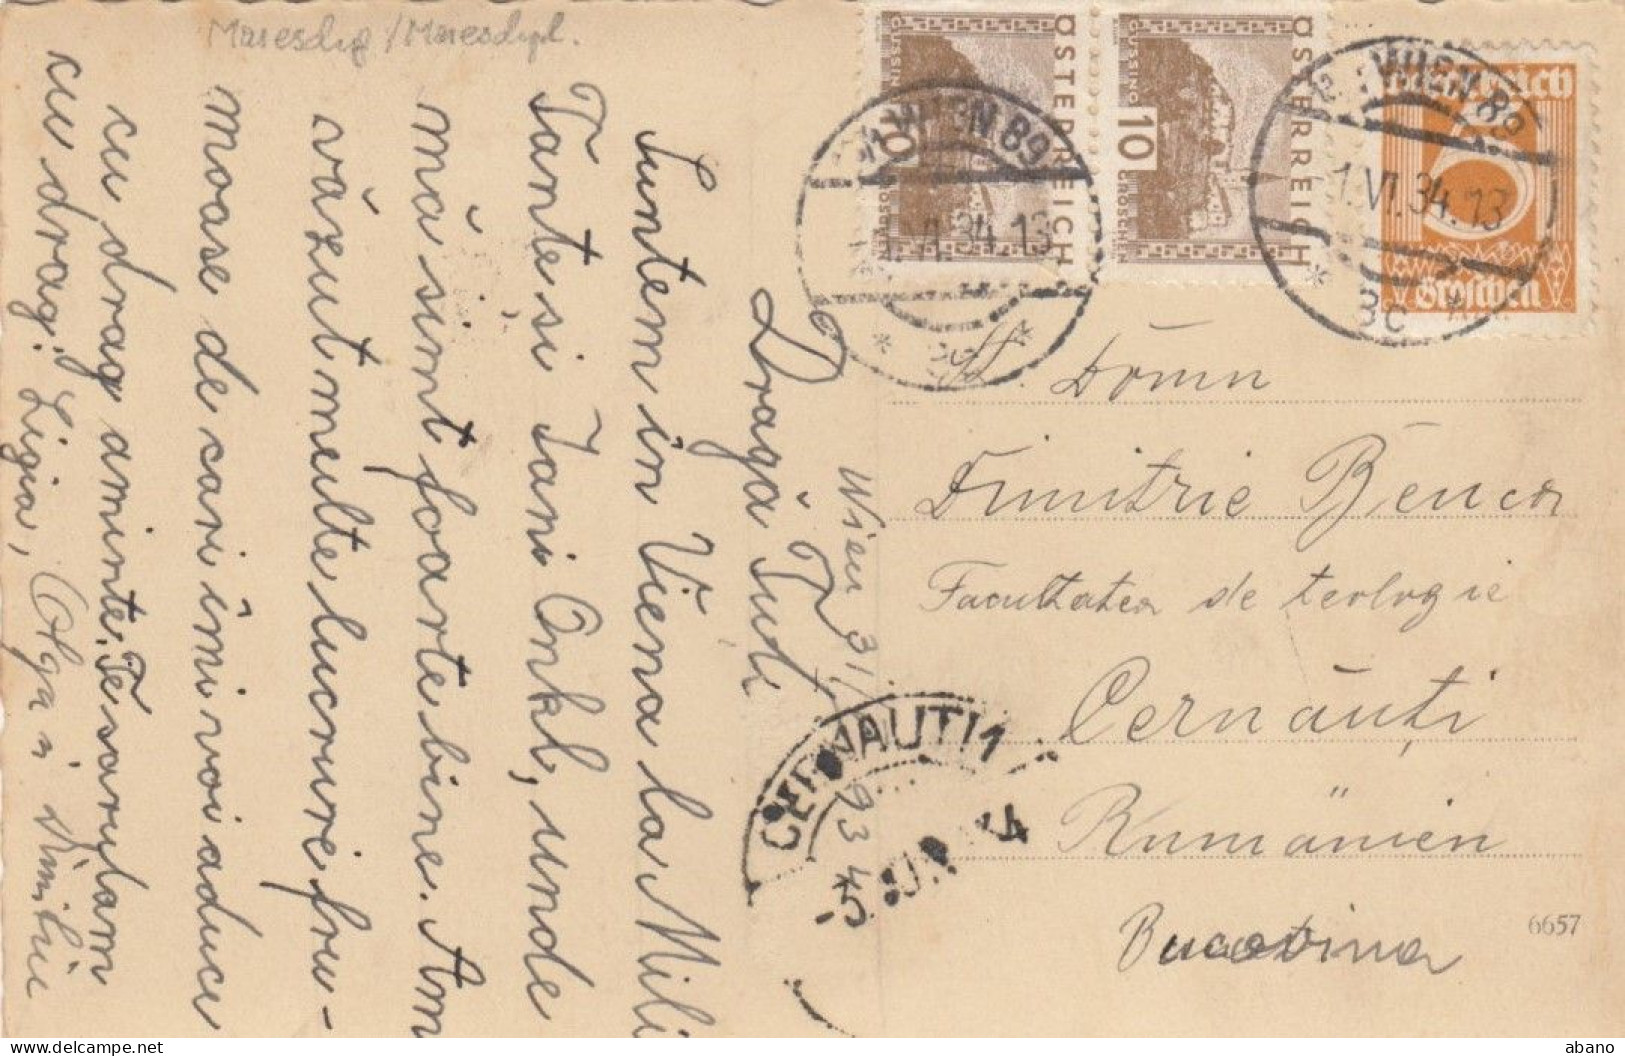 Wien 31/
Dragă Tudi
Suntem în Viena la Mili
Tante și Jani Onkl, unde
mă simt foarte bine. Am
văzut multe lucruri fru-
moase de cari îmi voi aduce
cu drag aminte. Te sarutam
cu drag: Ligia, Olga
ÖSTERREICH
GÜSSING
10
GROSCHEN
ÖSTERREICH
GÜSSING
10
GROSCHEN
Österreich
5
Groschen
WIEN 89
VI.34.13
WIEN 89
1.VI.34.13
3c
CERNAUTI 1
934
-5. JUN
Domn
Dimitrie Bencor
Facultatea de teologie
Cernăuți
Rumänien
Bucovina
6657
abano